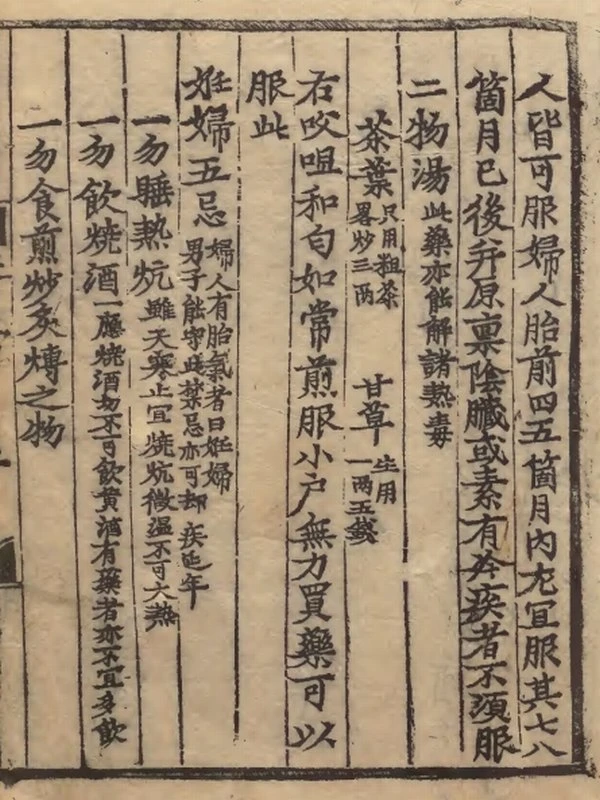 人皆可服婦人胎前四五箇月內尤宜服其七八
箇月已後并原禀陰臟或素有冷疾者不須服
二物湯 此藥亦能解諸熱毒
茶葉 只用粗茶畧炒三两 甘草 生用一两五錢
右㕮咀和勻如常煎服小户無力買藥可以
服此
妊婦五忌 婦人有胎氣者曰妊婦男子能守此禁忌亦可却疾延年
一勿睡熱炕 雖天寒止宜燒炕微溫不可大熱
一勿飲燒酒 一應燒酒勿不可飲黄酒有藥者亦不宜多飲
一勿食煎炒炙煿之物